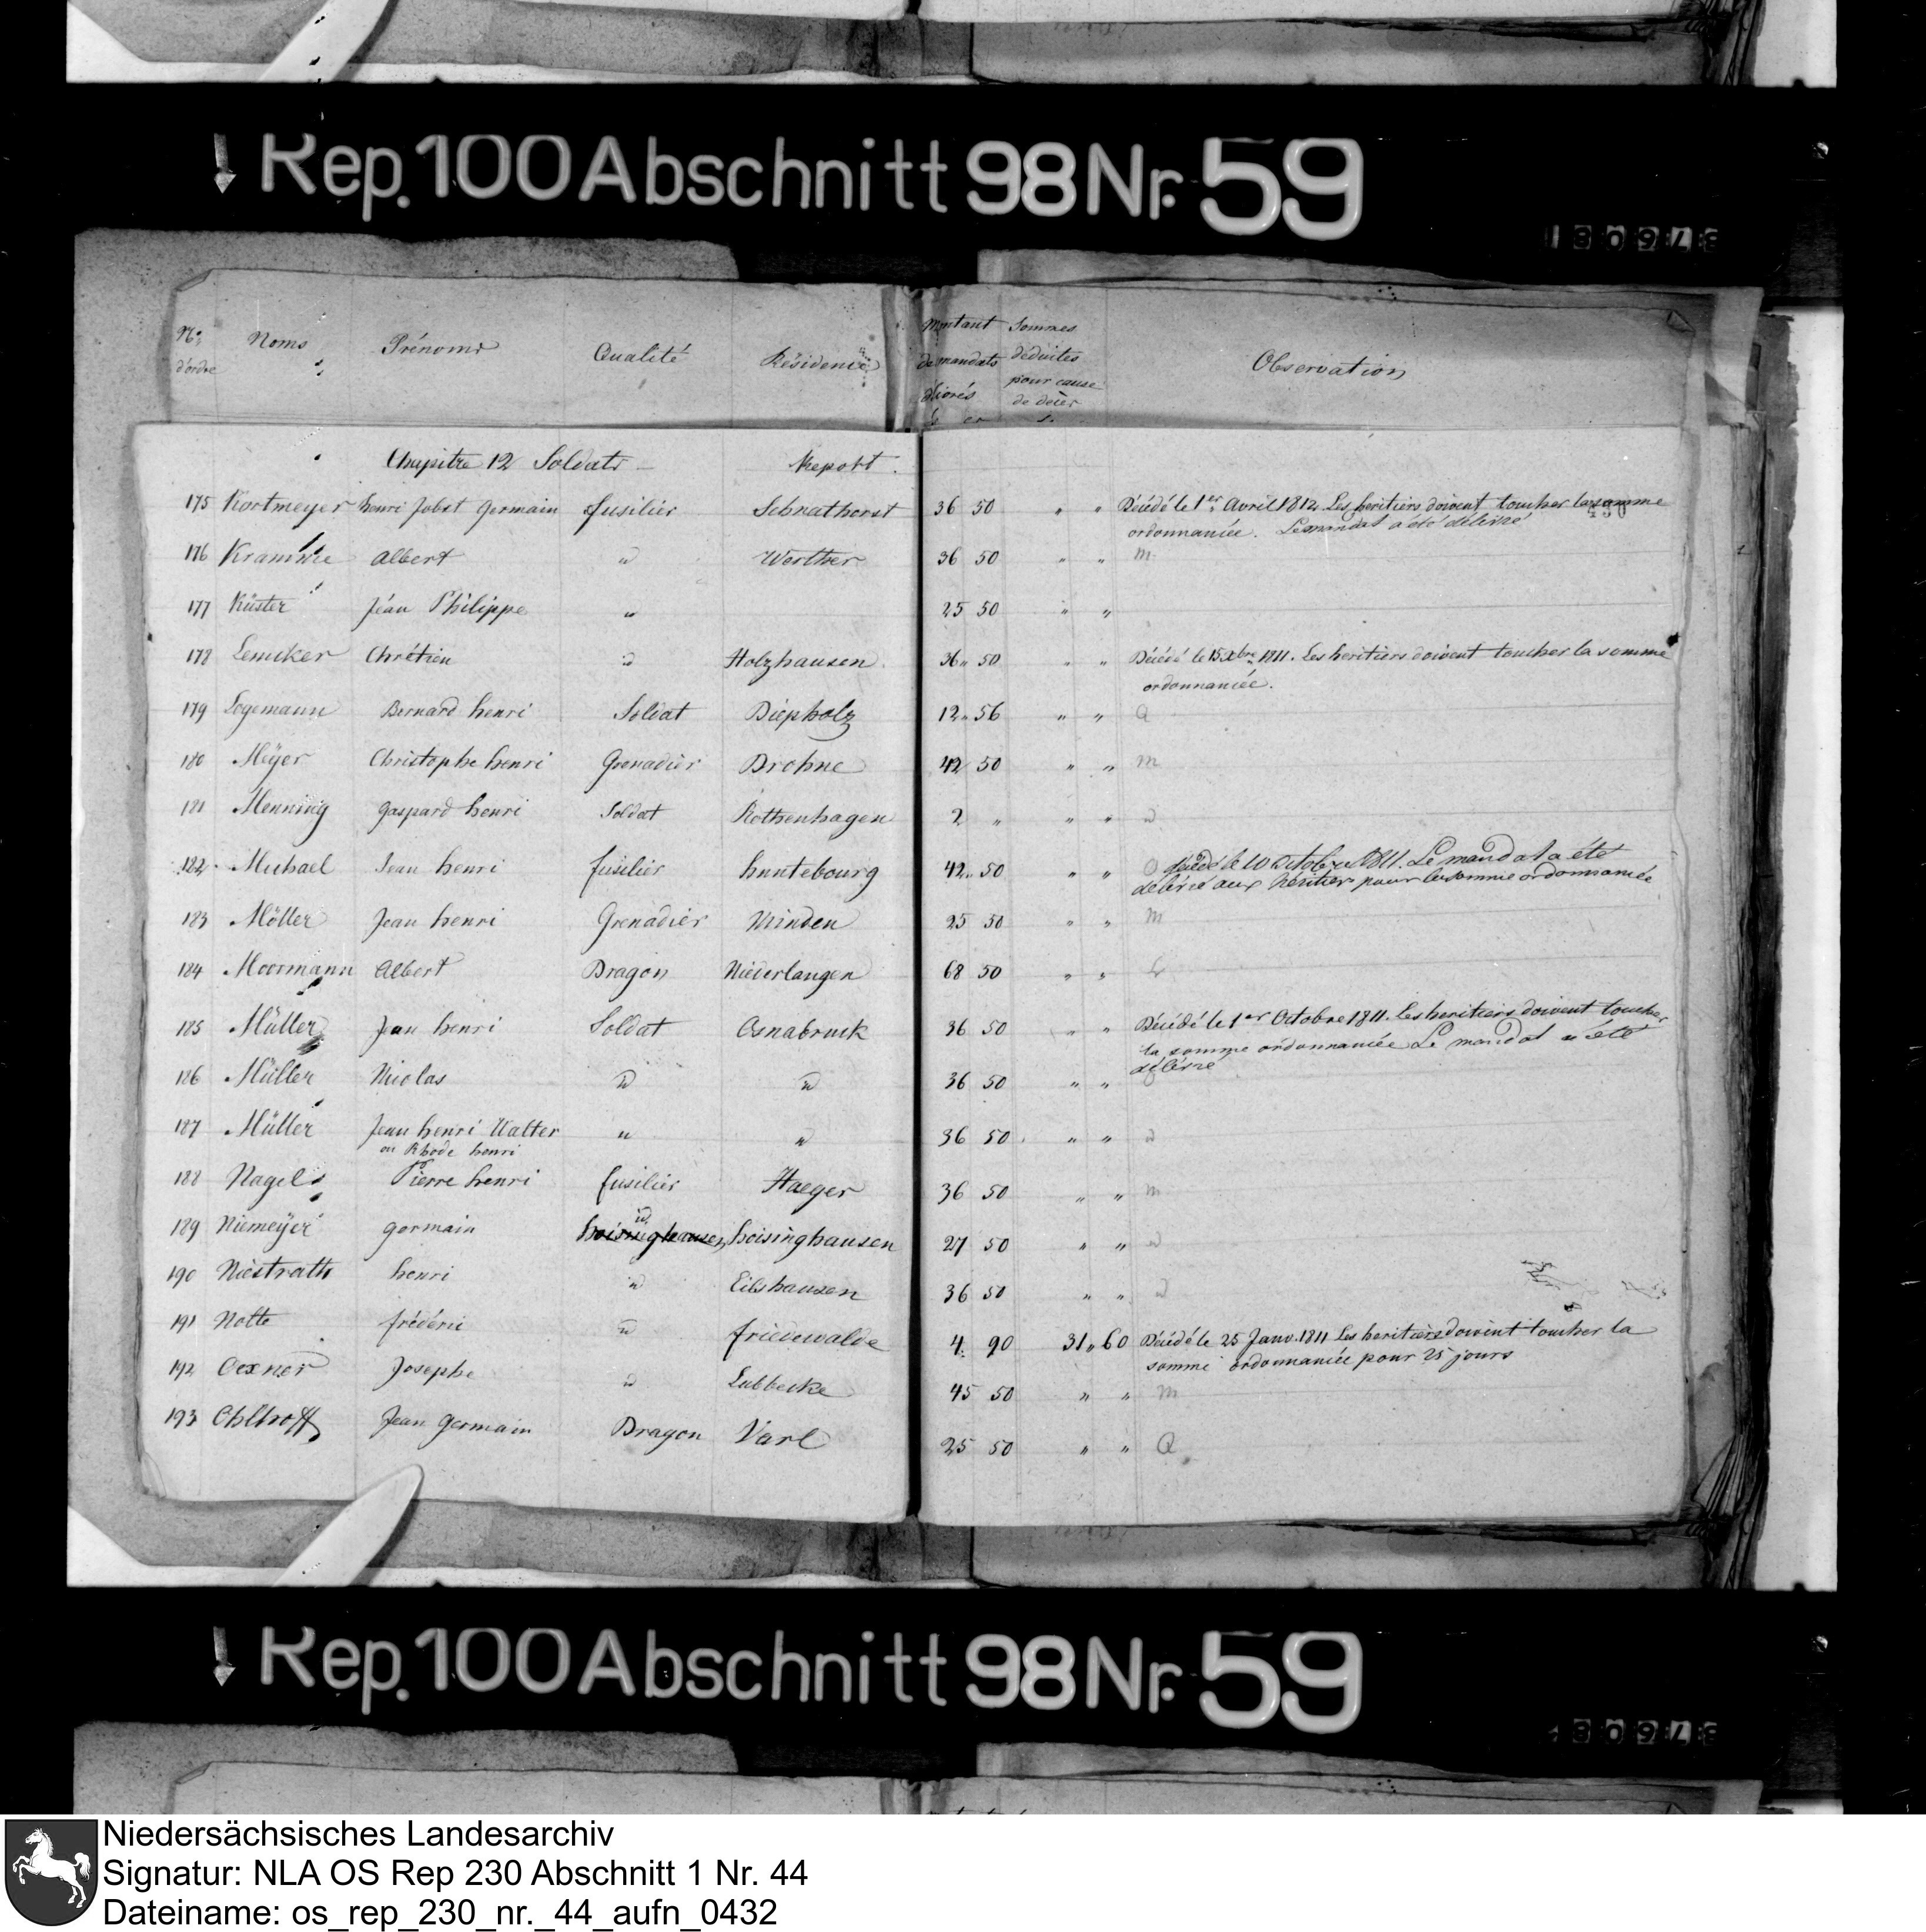 Rep. 100 Abschnitt 98 Nr. 59
N.° d'ordre Noms Prénoms Qualité Résidence Montant de mandats délivrés Sommes déduites pour cause de décès Observation
Chapitre 12 Soldats Report
175 Kortmeyer henri Jobst Germain fusilier Schnathorst 36 50 " " Décédé le 1er Avril 1812. Les heritiers doivent toucher la somme
ordonnancée. Le mandat a été délivré
176 Kramme Albert id Werther 36 50 " " M
177 Küster Jean Philippe " 25 50 " "
178 Lemcker Chrétien id Holzhausen 36 " 50 " " Décédé le 15 Xbre 1811. Les heritiers doivent toucher la somme
ordonnancée.
179 Logemann Bernard henri Soldat Diepholz 12 " 56 " " Q
180 Meÿer Christophe henri Grenadier Drohne 42 50 " " M
181 Menning Gaspard henri Soldat Rothenhagen 2 " " " id
182 Michael Jean henri fusilier huntebourg 42 " 50 " " O décédé le 10 Octobre 1811. Le mandat a été
délivré aux héritiers pour la somme ordonnancée
183 Möller Jean henri Grenadier Minden 25 50 " " M
184 Moormann Albert Dragon Niederlangen 68 50 " " L
185 Müller Jean henri Soldat Osnabruck 36 50 " " Décédé le 1er Octobre 1811. Les heritiers doivent toucher
la somme ordonnancée Le mandat a été
délivré
186 Müller Nicolas id id 36 50 " "
187 Müller Jean henri Walter " id 36 50 " " id
ou Rhode henri
188 Nagel Pierre henri fusilier Haeger 36 50 " " M
189 Niemeÿer germain id hoisinghausen hoisinghausen 27 50 " " id
190 Niestrath henri id Eilshausen 36 50 " " id
191 Notte fréderic id friedewalde 4. 90 31 " 60 Décédé le 25 Janv. 1811 Les heritiers doivent toucher la
somme ordonnancée pour 25 jours
192 Oexner Josephe id Lubbecke 45 50 " " M
193 Ohlhoff Jean germain Dragon Varl 25 50 " " Q
Rep. 100 Abschnitt 98 Nr. 59
Niedersächsisches Landesarchiv
Signatur: NLA OS Rep 230 Abschnitt 1 Nr. 44
Dateiname: os_rep_230_nr._44_aufn_0432